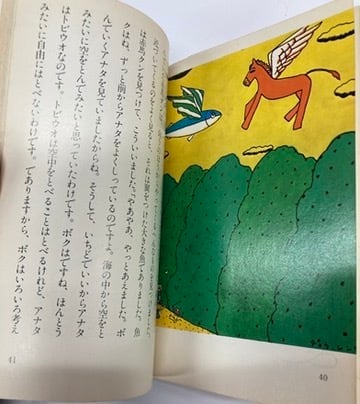 近づいてくるのをよく見ると、それは翼をつけた大きな魚でありました。魚
は赤馬クンを見つけて、こういいました。やあやあ、やっとあえました。ボ
クはね、ずっと前からアナタをよくしっているのですよ。海の中から空をと
んでいくアナタを見ていましたからね。そうして、いちどでいいからアナタ
みたいに空をとんでみたいと思っていたわけです。ボクはですね、ほんとう
はトビウオなのです。トビウオは空中をとべることはとべるけれど、アナタ
みたいに自由にはとべないわけです。でありますから、ボクはいろいろ考え
41
40